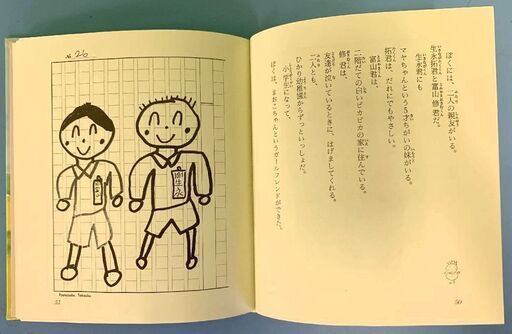 ぼくには、二人の親友がいる。
生永拓君と富山修君だ。
生永君にも
マヤちゃんという5才ちがいの妹がいる。
拓君は、だれにでもやさしい。
富山君は、
二階だての白いピカピカの家に住んでいる。
修君は、
友達が泣いているときに、はげましてくれる。
二人とも、
ひかり幼稚園からずっといっしょだ。
小学生になって、
ぼくは、まおこちゃんというガールフレンドができた。
50
No. 26
51